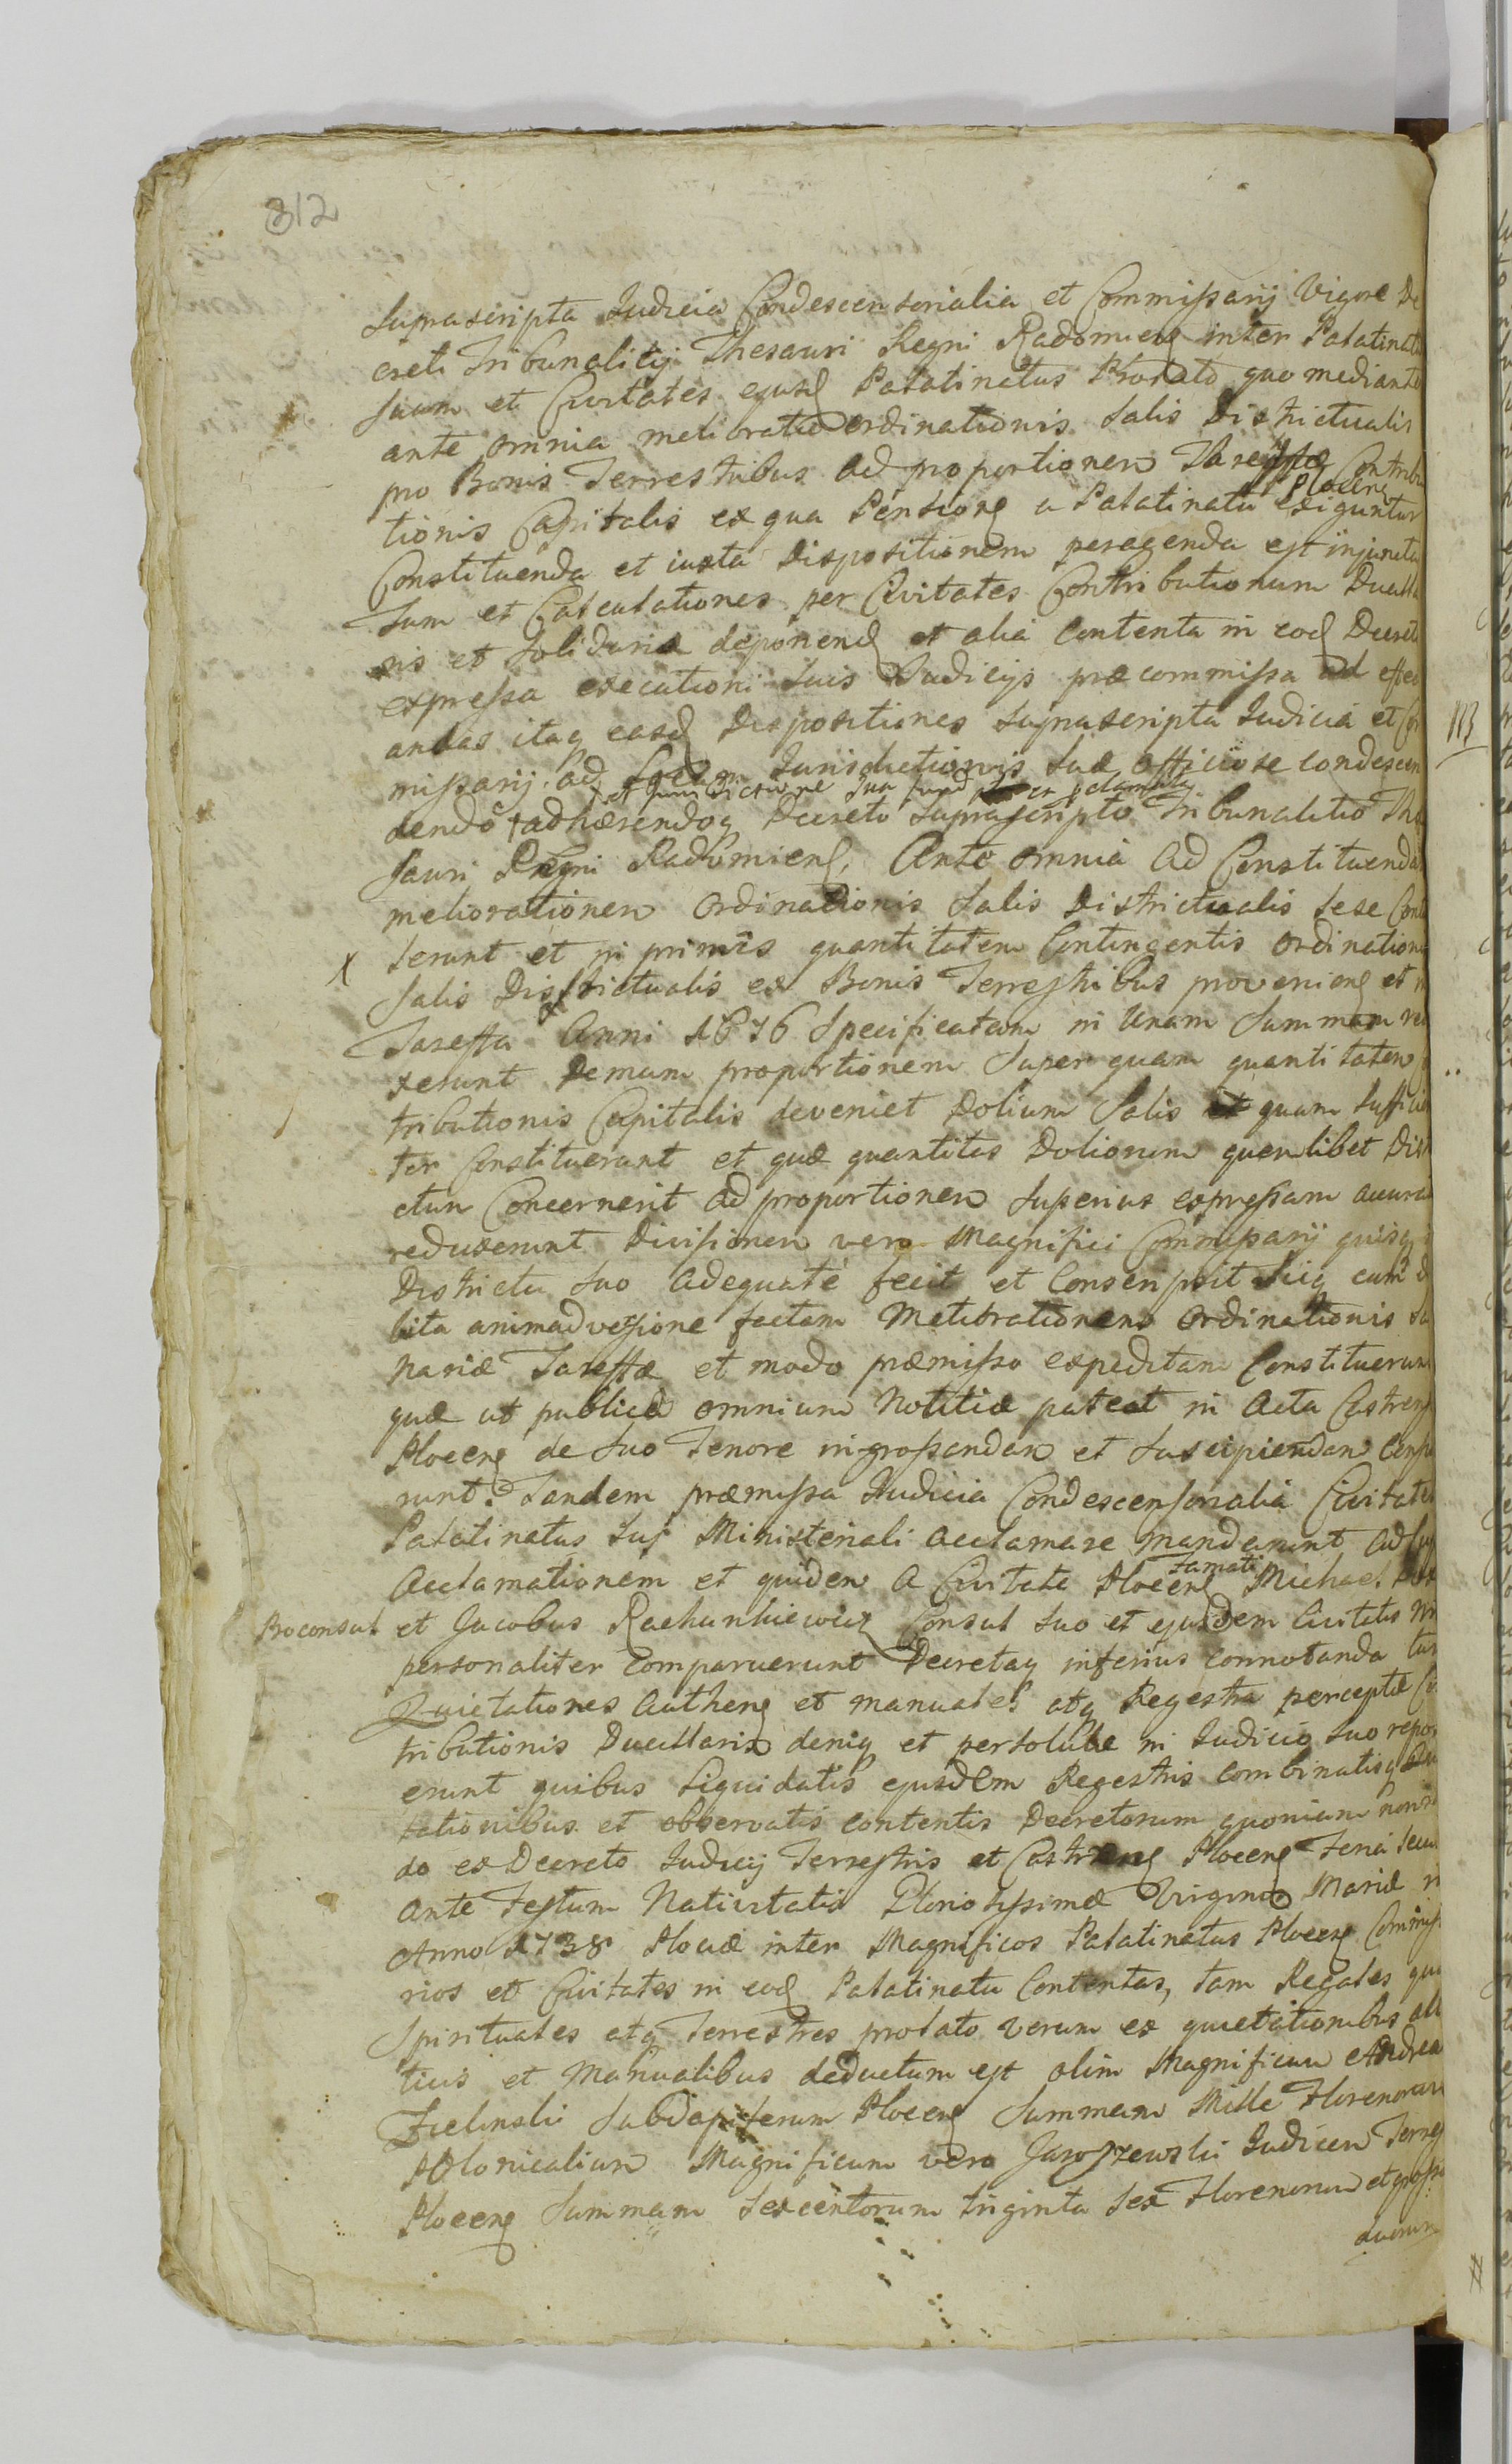 312
Suprascripta Judicia Condescensorialia et Commissarij Vigore De
creti Tribunalitij Thesauri Regni Radomien inter Palatinatu
suum et Civitates ejusd Palatinatus Prolato quo mediante
ante omnia melioratio ordinationis Salis Districtualis
pro Bonis Terrestribus ad proportionem Thareffæ Contribu
Plocen
tionis Capitalis ex qua Pension a Palatinatu exiguntur
Constituenda et iuxta Dispositionem peragenda est injuncta
Tum et Calculationes per Civitates Contributionum Ducilla
ris et Solidaria deponend et alia contenta in eod Decreto
expressa executioni suis Judicijs præcommissa ad effec
andas itaq easd Dispositiones suprascripta Judicia et Co
missarij ad Jurisdictionis suæ officiose condescen
et Jurisdictione sua fund
dendo adhærendoq Decreto Suprascripto Tribunalitio The
sauri Regni Radomien, Ante omnia ad Constituenda
meliorationem Ordinationis Salis Districtualis sese Cont
X serunt et in primis quantitatem Contingentis ordination
Salis Districtualis ex Bonis Terrestribus provenien et
Tareffa Anni 1676 Specificatam in Unam Summam re
xerunt Demum proportionem Super quam quantitatem
tributionis Capitalis deveniet Dolium Salis et quam suffici
ter Constituerunt et quæ quantitas Doliorum quemlibet Dist
ctum Concernerit ad proportionem Superius expressam accura
reduxerunt Divisionem vero Magnifici Commissarij quisq
Districtu suo adequate fecit et Conscripsit Sicq cum d
bita animadversione factam Meliorationem Ordinationis Sa
nariæ Tareffæ et modo præmisso expeditam Constituerun
quæ ut publicæ omnium Notitiæ pateat in Acta Castren
Plocen de suo Tenore ingrossandam et suscipiendam Censu
runt. Tandem præmissa Judicia Condescensorialia Civitates
Palatinatus sui Ministeriali acclamare mandarunt ad
Famati
Acclamationem et quidem a Civitate Plocen Michael
Proconsul et Jacobus Rachunkiewicz Consul suo et ejusdem Civitatis
personaliter comparuerunt Decretaq inferius connotanda
Quietationes Authen et manuales atq Regestra perceptæ
tributionis Ducillaris deniq et persolutæ in Judicio suo repo
erunt quibus Liquidatis ejusdem Regestris combinatisq
tationibus et observatis contentis Decretorum quoniam
do ex Decreto Judicij Terrestris et Castren Plocen Feria
Ante Festum Nativitatis Gloriosissimæ Virginis Mariæ
Anno 1738 Plociæ inter Magnificos Palatinatus Plocen Commiss
rios et Civitates in eod Palatinatu Contentas, tam Regales qu
Spirituales atq Terrestres prolato verum ex quietationibus
tius et Manualibus deductum est olim Magnificum Andrea
Zielinski Subdapiferum Plocen Summam Mille Florenorum
Polonicalium Magnificum vero Jaroszewski Judicem Terres
Plocen Summam sexcentorum triginta sex Florenorum et gross
duorum